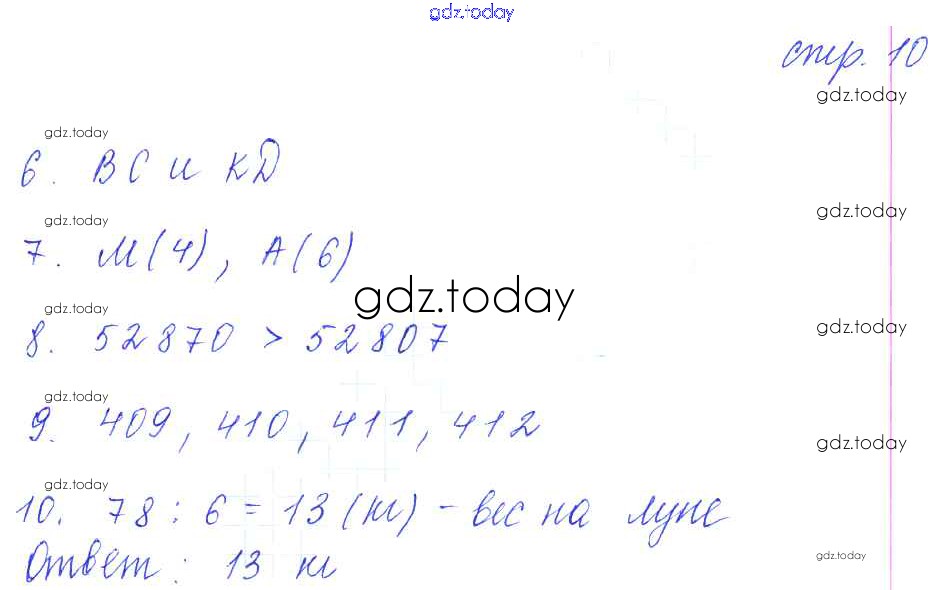 gdz.today
стр. 10
gdz.today
gdz.today
6. ВС и КД
gdz.today
gdz.today
7. М(4), А(6)
gdz.today
gdz.today
gdz.today
8. 52870 > 52807
gdz.today
9. 409, 410, 411, 412
gdz.today
gdz.today
10. 78 : 6 = 13 (кг) - вес на луне
gdz.today
Ответ: 13 кг